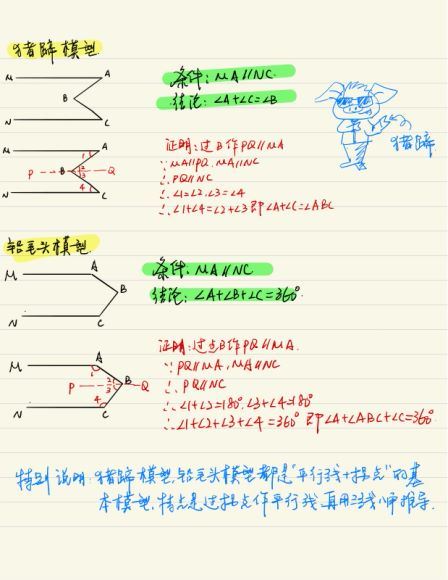 猪蹄模型
M A
B
N C
条件：MA∥NC
结论：∠A+∠C=∠B
猪蹄
M A
1
P B 2 3 Q
4
N C
证明：过B作PQ∥MA
∵MA∥PQ，MA∥NC
∴PQ∥NC
∴∠1=∠2，∠3=∠4
∴∠1+∠4=∠2+∠3 即∠A+∠C=∠ABC
铅笔头模型
M A
B
N C
条件：MA∥NC
结论：∠A+∠B+∠C=360°
M A
1
P 2 3 B Q
4
N C
证明：过点B作PQ∥MA.
∵PQ∥MA，MA∥NC
∴PQ∥NC
∴∠1+∠2=180°，∠3+∠4=180°
∴∠1+∠2+∠3+∠4=360° 即∠A+∠ABC+∠C=360°
特别说明：猪蹄模型，铅笔头模型都是“平行线+拐点”的基
本模型，特点是过拐点作平行线，再用推导.